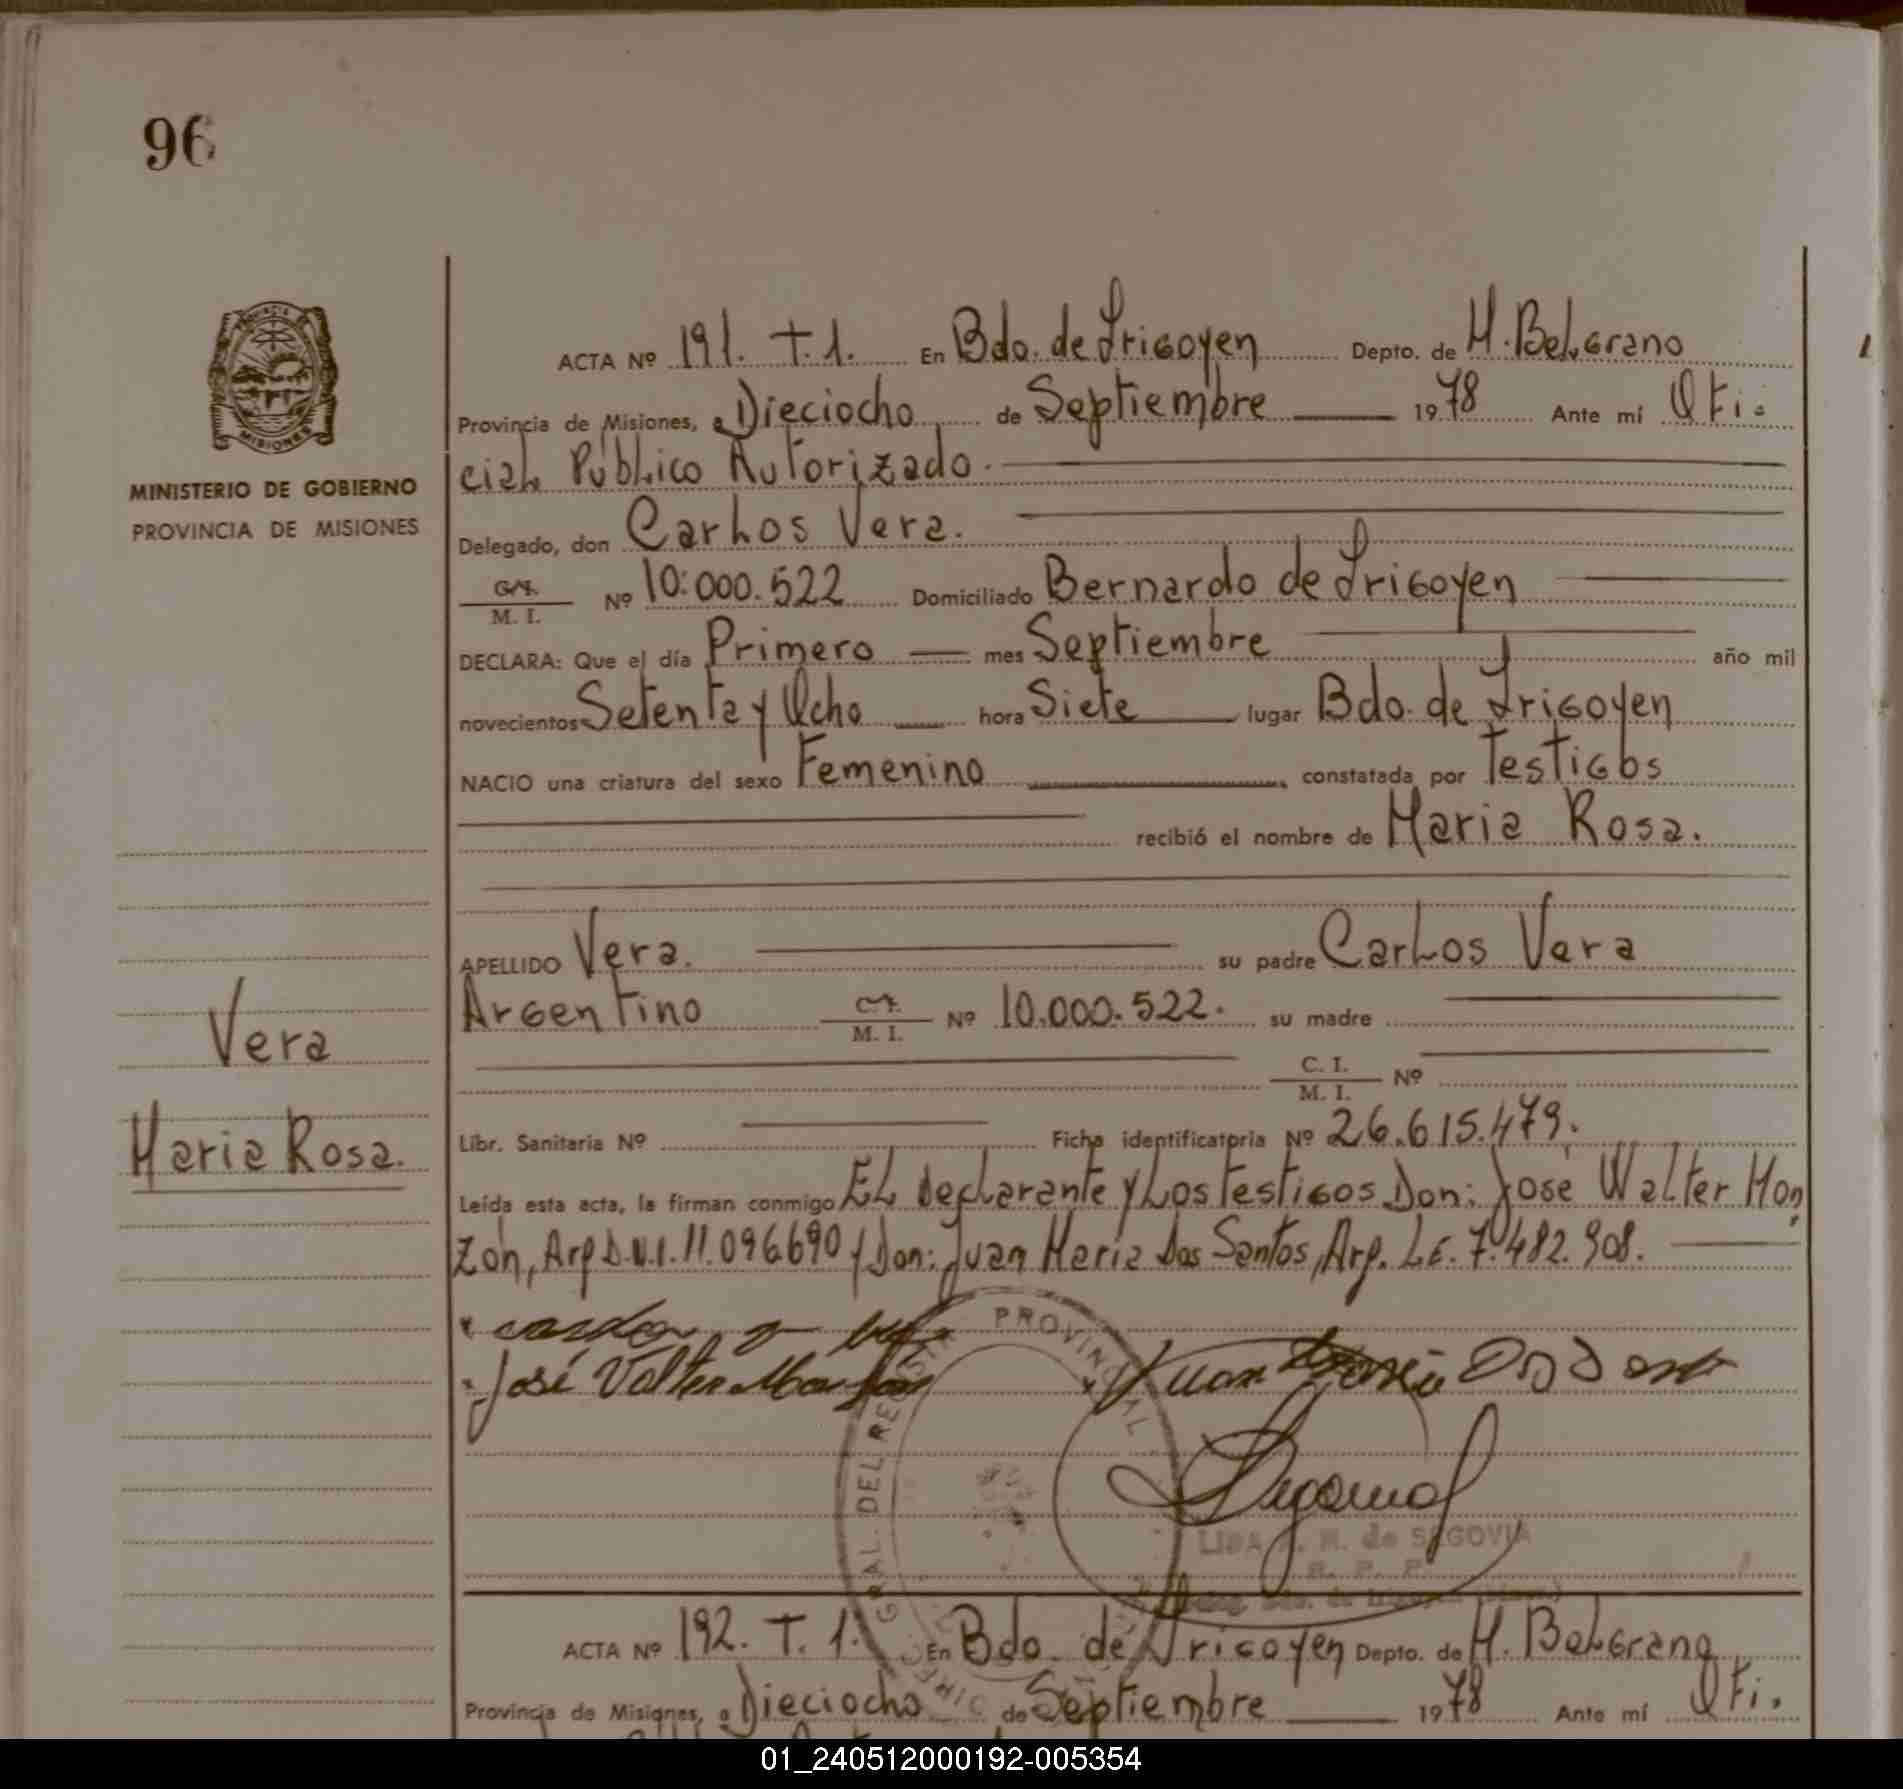 96
MINISTERIO DE GOBIERNO
PROVINCIA DE MISIONES
MISIONES
Vera
Maria Rosa.
ACTA Nº 191. T. 1. En Bdo. de Irigoyen Depto. de M. Belgrano
Provincia de Misiones, a Dieciocho de Septiembre 1978 Ante mí Ofi-
cial Público Autorizado.
Delegado, don Carlos Vera.
C. I. / M. I. Nº 10.000.522 Domiciliado Bernardo de Irigoyen
DECLARA: Que el día Primero mes Septiembre año mil
novecientos Setenta y Ocho hora Siete lugar Bdo. de Irigoyen
NACIO una criatura del sexo Femenino, constatada por Testigos
recibió el nombre de Maria Rosa.
APELLIDO Vera. su padre Carlos Vera
Argentino C. I. / M. I. Nº 10.000.522. su madre
C. I. / M. I. Nº
Libr. Sanitaria Nº Ficha identificatoria Nº 26.615.479.
Leída esta acta, la firman conmigo El Declarante y Los Testigos Don: José Walter Mon
zón, Arg D.N.I. 11.096690 y Don: Juan Maria Dos Santos, Arg. L.E. 7.482.908.
José Valter
Juan
GRAL. DEL REGISTRO PROVINCIAL
LIDA de SEGOVIA
ACTA Nº 192. T. 1. En Bdo. de Irigoyen Depto. de M. Belgrano
Provincia de Misiones, a Dieciocho de Septiembre 1978 Ante mí Ofi.
01_240512000192-005354